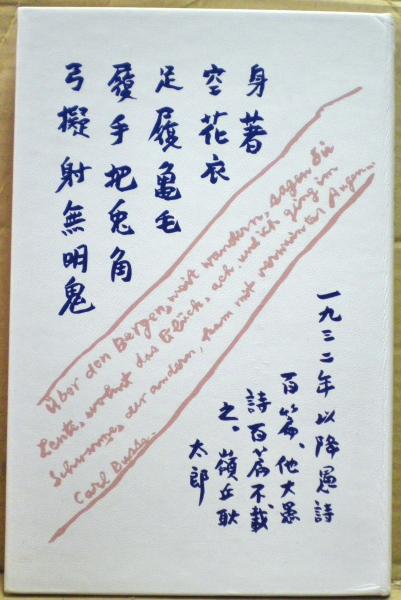 身著
空花衣
足履亀毛
履手把兎角
弓擬射無明鬼
Über den Bergen, weit wandern, sagen die
Leute, wohnt das Glück, ach, und ich ging im
Schwarme, der andern, kam mit verweinten Augen...
Carl Busse.
一九三二年以降愚詩
百篇、他大愚
詩百篇不載
之。嶺丘耿
太郎